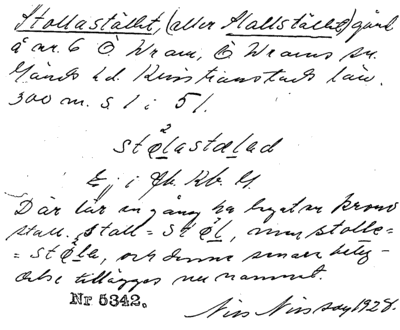 Stollastället, (eller Stallstället) gård
å nr. 6 Ö Wram, Ö Wrams sn.
Gärds hd. Kristianstads län.
300 m. S 1 i 51.
stølastælad
Ej i Jb. Kb. G.
Där lär en gång ha legat en krono
stall. Stall = støl, men stolle =
= støla, och denne senare betyd-
else tillägges nu namnet.
Nr 5342.
Nils Nilsson 1928.